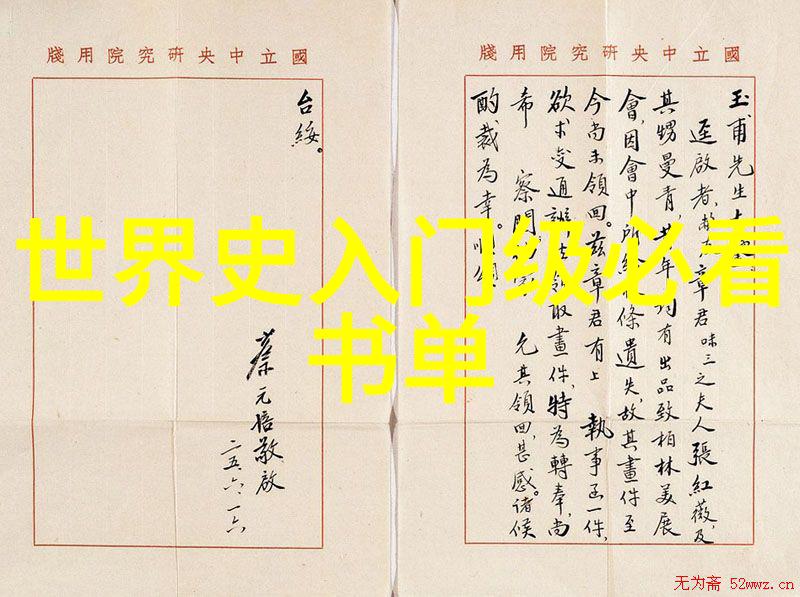 國立中央研究院用牋
玉甫先生
逕啟者,敝友章君味三之夫人張紅薇,及
其甥曼青,廿年 有出品致柏林美展
會,因會中所給 條遺失,故其畫件至
今尚未領回。茲章君有上 執事函一件,
欲求變通辦法 領取畫件,特為轉奉,尚
希 察 允其領回,甚感。諸候
酌裁為幸。順頌
國立中央研究院用牋
台綏。
蔡元培敬啟
二五、六、一六
世界史入门级必看
书单
无为斋 52wwz.cn